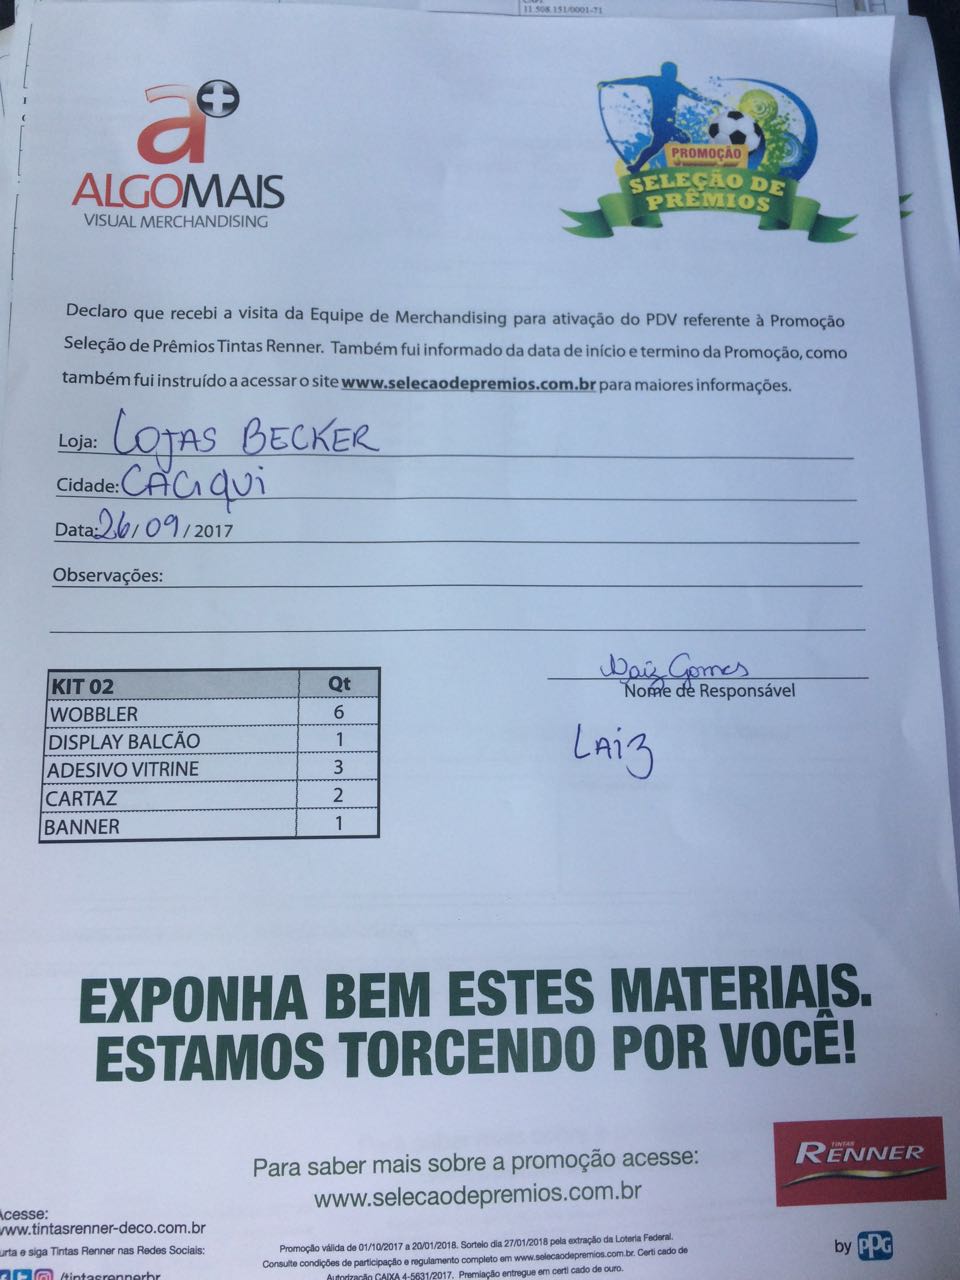 11.508.151/0001-71
a+
ALGOMAIS
VISUAL MERCHANDISING
PROMOÇÃO
SELEÇÃO DE
PRÊMIOS
Declaro que recebi a visita da Equipe de Merchandising para ativação do PDV referente à Promoção
Seleção de Prêmios Tintas Renner. Também fui informado da data de início e termino da Promoção, como
também fui instruído a acessar o site www.selecaodepremios.com.br para maiores informações.
Loja: LOJAS BECKER
Cidade: CACIQUI
Data: 26/09/2017
Observações:
Laiz Gomes
Nome de Responsável
LAIZ
KIT 02 Qt
WOBBLER 6
DISPLAY BALCÃO 1
ADESIVO VITRINE 3
CARTAZ 2
BANNER 1
EXPONHA BEM ESTES MATERIAIS.
ESTAMOS TORCENDO POR VOCÊ!
Para saber mais sobre a promoção acesse:
www.selecaodepremios.com.br
TINTAS
RENNER
Acesse:
www.tintasrenner-deco.com.br
urta e siga Tintas Renner nas Redes Sociais:
/tintasrennerbr
Promoção válida de 01/10/2017 a 20/01/2018. Sorteio dia 27/01/2018 pela extração da Loteria Federal.
Consulte condições de participação e regulamento completo em www.selecaodepremios.com.br. Certi cado de
Autorização CAIXA 4-5631/2017. Premiação entregue em certi cado de ouro.
by PPG